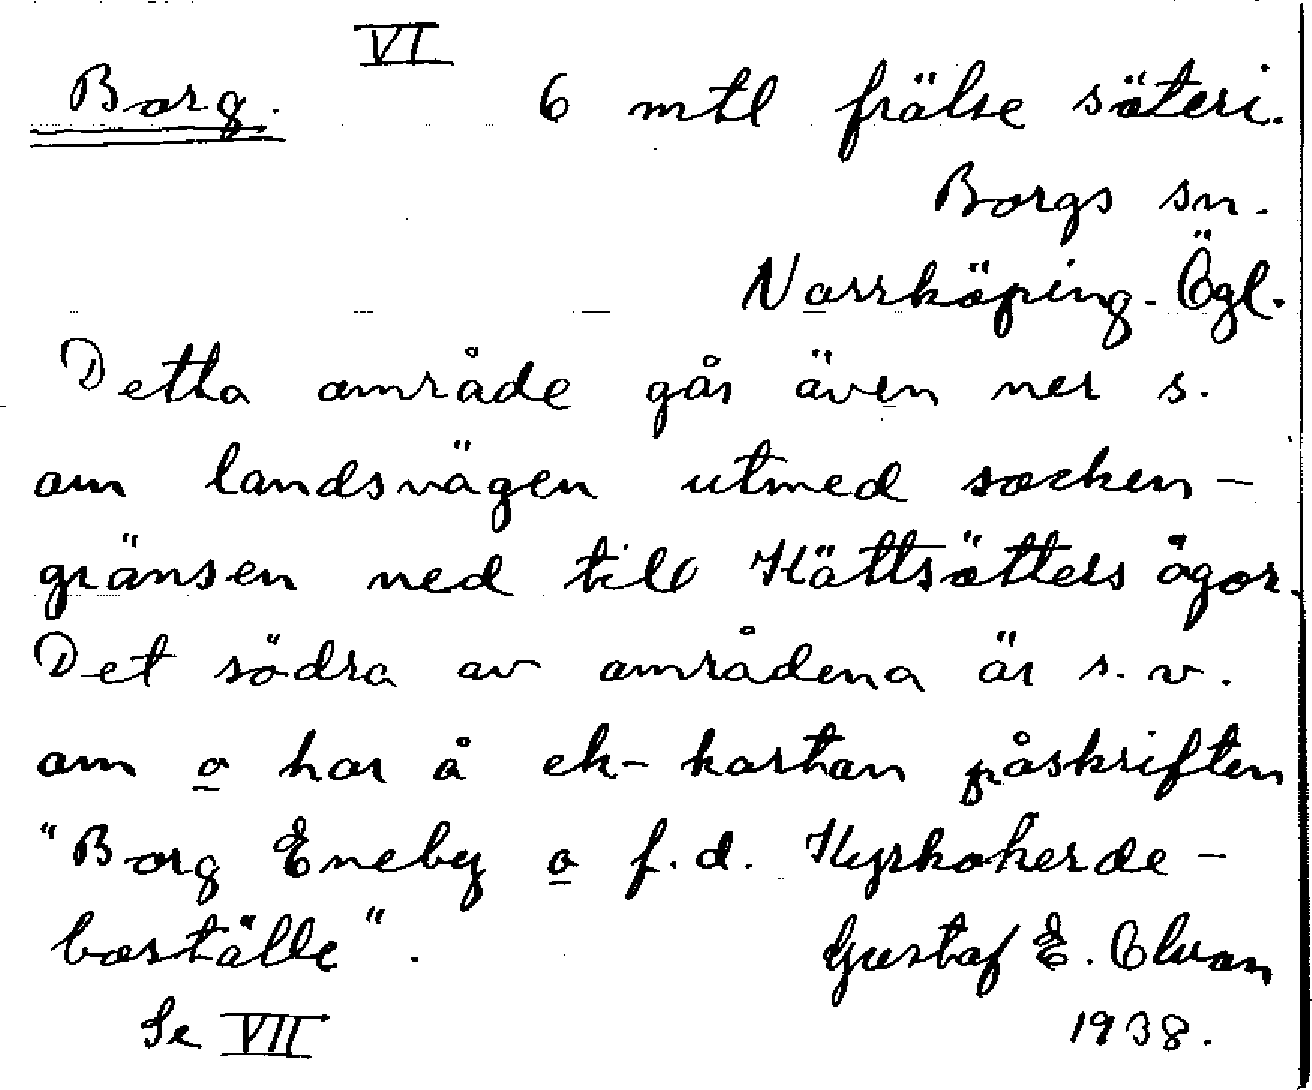 VI
Borg. 6 mtl frälse säteri.
Borgs sn.
Norrköping. Ögl.
Detta område går även ner s.
om landsvägen utmed socken-
gränsen ned till Kättsätters ägor.
Det södra av områdena är s.v.
om o har å ek-kartan påskriften
"Borg Eneby o f.d. Kyrkoherde-
boställe". Gustaf E.
Se VII 1938.